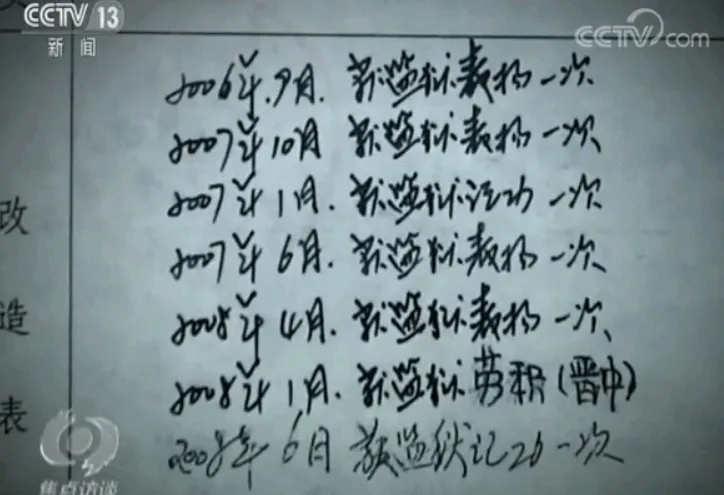 CCTV 13
新闻
CCTV.com
2006年.9月.获监狱表扬一次
2007年10月 获监狱表扬一次
2007年1月.获监狱记功一次
2007年6月.获监狱表扬一次
2008年4月.获监狱表扬一次
2008年1月.获监狱劳积(晋中)
2008年6月 获监狱记功一次
改
造
表
焦点访谈